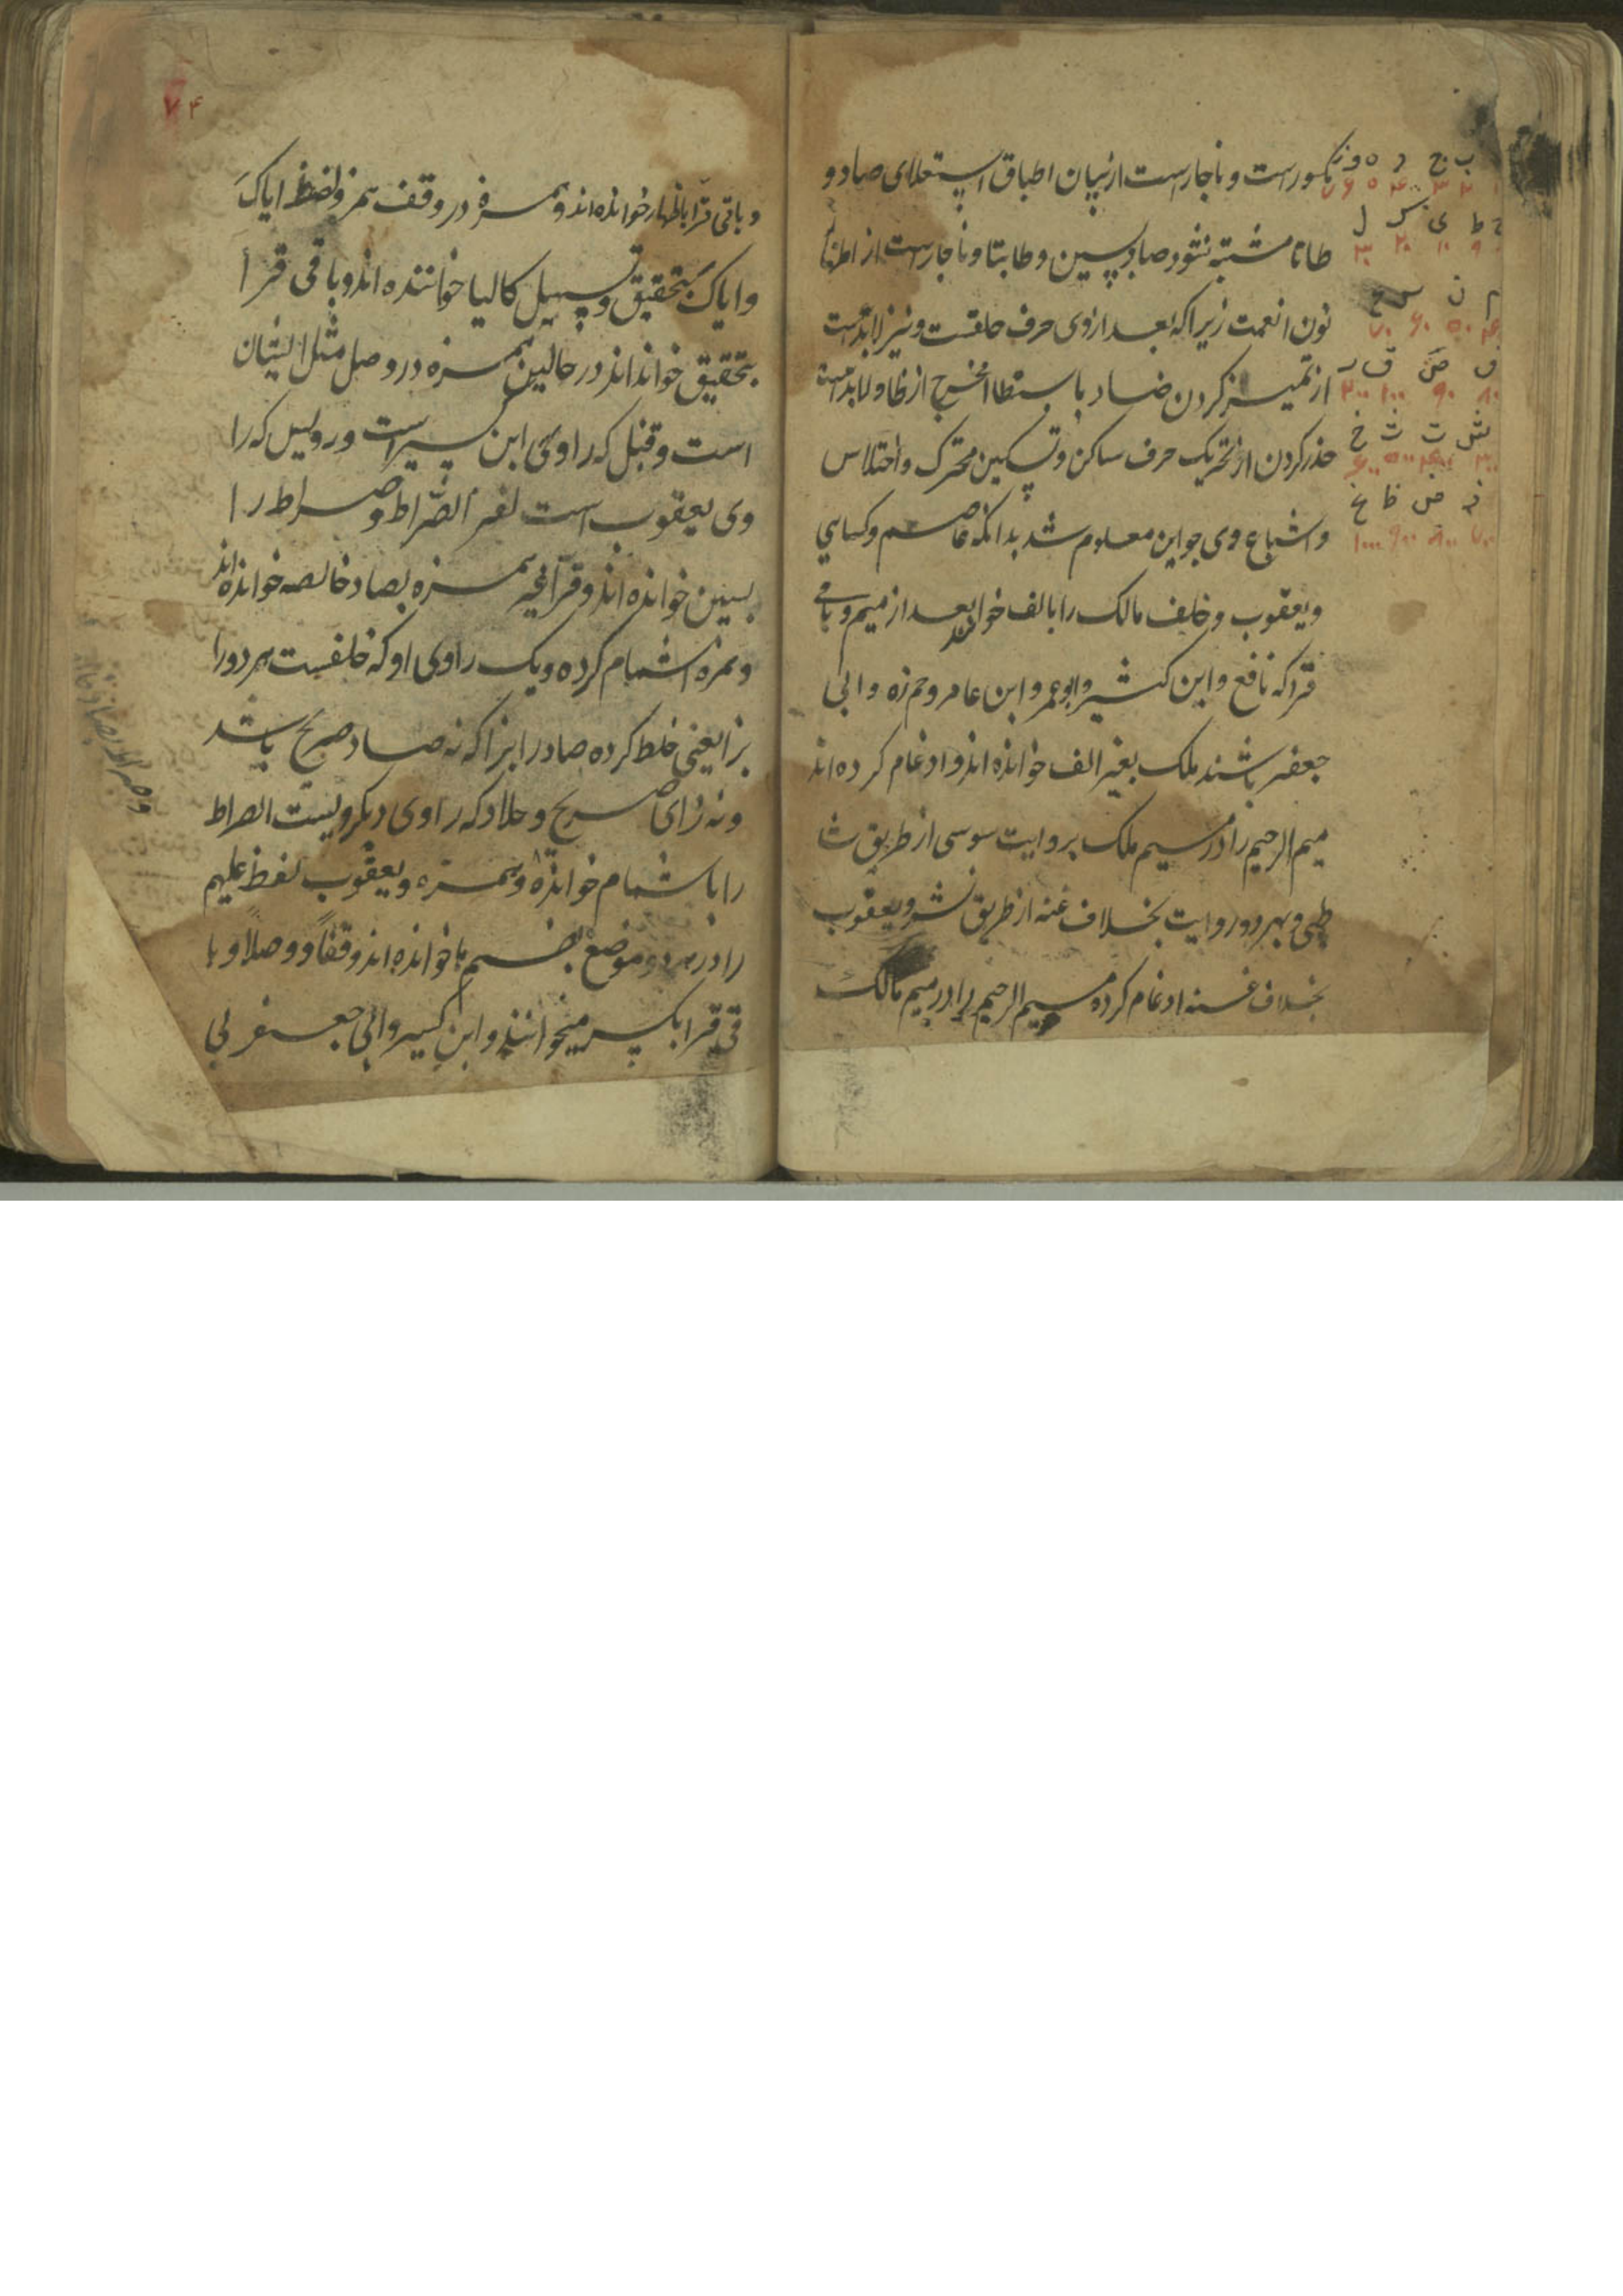 مکسورست و ناچارست از بیان اطباق استعلای صاد و
طا تا مشتبه نشود صاد بسین و طا بتا و ناچارست از اظهار
نون انعمت زیرا که بعد از وی حرف حلقست و نیز لابدست
از تمیز کردن ضاد باستطالا مخرج از ظا و لابدست
حذر کردن از تحریک حرف ساکن و تسکین متحرک و اختلاس
و اشباع وی چو این معلوم شد بدانکه عاصم و کسایی
و یعقوب و خلف مالک را بالف خوانند بعد از میم و باقی
قرا که نافع و ابن کثیر و ابو عمرو ابن عامر و حمزه و ابی
جعفر باشند ملک بغیر الف خوانده اند و ادغام کرده اند
میم الرحیم را در میم ملک بروایت سوسی از طریق شا
طبی و بهر دو روایت بخلاف عنه از طریق نشر و یعقوب
بخلاف عنه ادغام کرده میم الرحیم را در میم مالک
ب ج د ه و ز
۱ ۲ ۳ ۴ ۵ ۶ ۷
ح ط ی ک ل
۹ ۱۰ ۲۰ ۳۰
م ن س ع
۴۰ ۵۰ ۶۰ ۷۰
ف ص ق ر
۸۰ ۹۰ ۱۰۰ ۲۰۰
ش ت ث خ
۳۰۰ ۴۰۰ ۵۰۰ ۶۰۰
ذ ض ظ غ
۷۰۰ ۸۰۰ ۹۰۰ ۱۰۰۰
۷۴
و باقی قرا باظهار خوانده اند و حمزه در وقف همزه لفظ ایاک
و ایاک بتحقیق و تسهیل کالیا خوانده اند و باقی قرا
بتحقیق خوانداند در حالین حمزه در وصل مثل ایشان
است و قنبل که راوی ابن کسیر است و رویس که را
وی یعقوب است لفظ الصراط و صراط را
بسین خوانده اند و قرا غیر حمزه بصاد خالصه خوانده اند
و حمزه اشمام کرده و یک راوی او که خلفست هر دو را
بزا یعنی خلط کرده صاد را بزا که نه صاد صریح باشد
و نه زای صریح و خلاد که راوی دیکر ویست الصراط
را باشمام خوانده و حمزه و یعقوب لفظ علیهم
را در هر دو موضع بضم ها خوانده اند وقفاً و وصلاً و با
قی قرا بکسر میخوانند و ابن کسیر و ابی جعفر بی